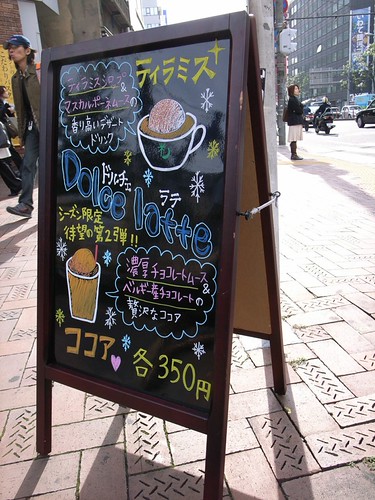 ティラミス
ティラミスシロップ&
マスカルポーネムースの
香り高いデザート
ドリンク
ドルチェ ラテ
Dolce latte
シーズン限定
待望の第2弾!!
濃厚チョコレートムース
&
ベルギー産チョコレートの
贅沢なココア
ココア
各350円